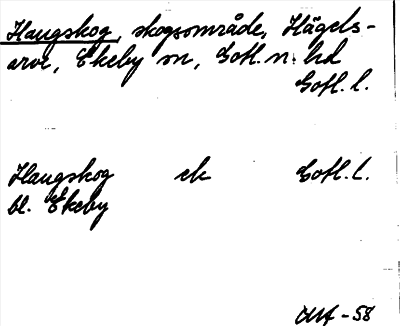 Haugskog, skogsområde, Hägels-
arve, Ekeby sn, Gotl. n. hd
Gotl. l.
Haugskog ek Gotl. l.
bl. Ekeby
-58